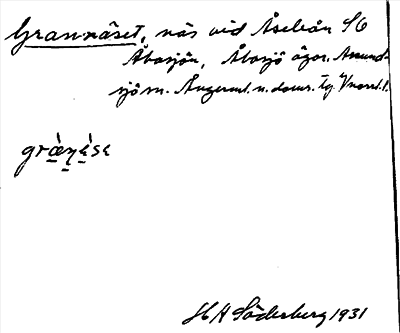 Grannäset, näs vid Åseleån SO
Åbosjön, Åbosjö ägor. Anund-
sjö sn. Ångerml. n. doms. Tg.
græ̀ṇę́sę
H A Söderberg 1931